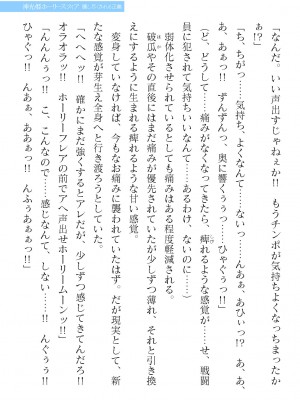 「なんだ。いい声出すじゃねぇか!! もうチンポが気持ちよくなっちまったか
ぁ!?」
「ち、ちがっ……気持ち、よくなんて……ないっ……んあぁ、あひいっ!? あ、あ、
あ、あぁっ!! ずんずんっ、奥に響くぅぅっ……ひゃぐぅっ!!」
(ど、どうして……痛みがなくなってきたら、痺れるような感覚が……せ、戦闘
員に犯されて気持ちいいなんて……あるわけ、ないのに……)
弱体化させられているとしても痛みはある程度軽減される。
破瓜やその直後にはまだ痛みが優先されていたが少しずつ薄れ、それと引き換
えにするように生まれる痺れるような甘い感覚。
変身していなければ、今もなお痛みに襲われていたはず。だが現実として、新
たな感覚が芽生え全身へと行き渡ろうとしていた。
「へへへッ!! 確かにまだ強くするとアレだが、少しずつ感じてきてんだろ!!
オラオラッ!! ホーリーフレアの前でアヘ声出せホーリームーンッ!!」
「んんんぅっ!! こ、こんなので……感じなんて、しない……!! んぐぅぅ!!
ひゃぐっ!! んあぁ あああっ!! んふぅあぁぁっ!!」